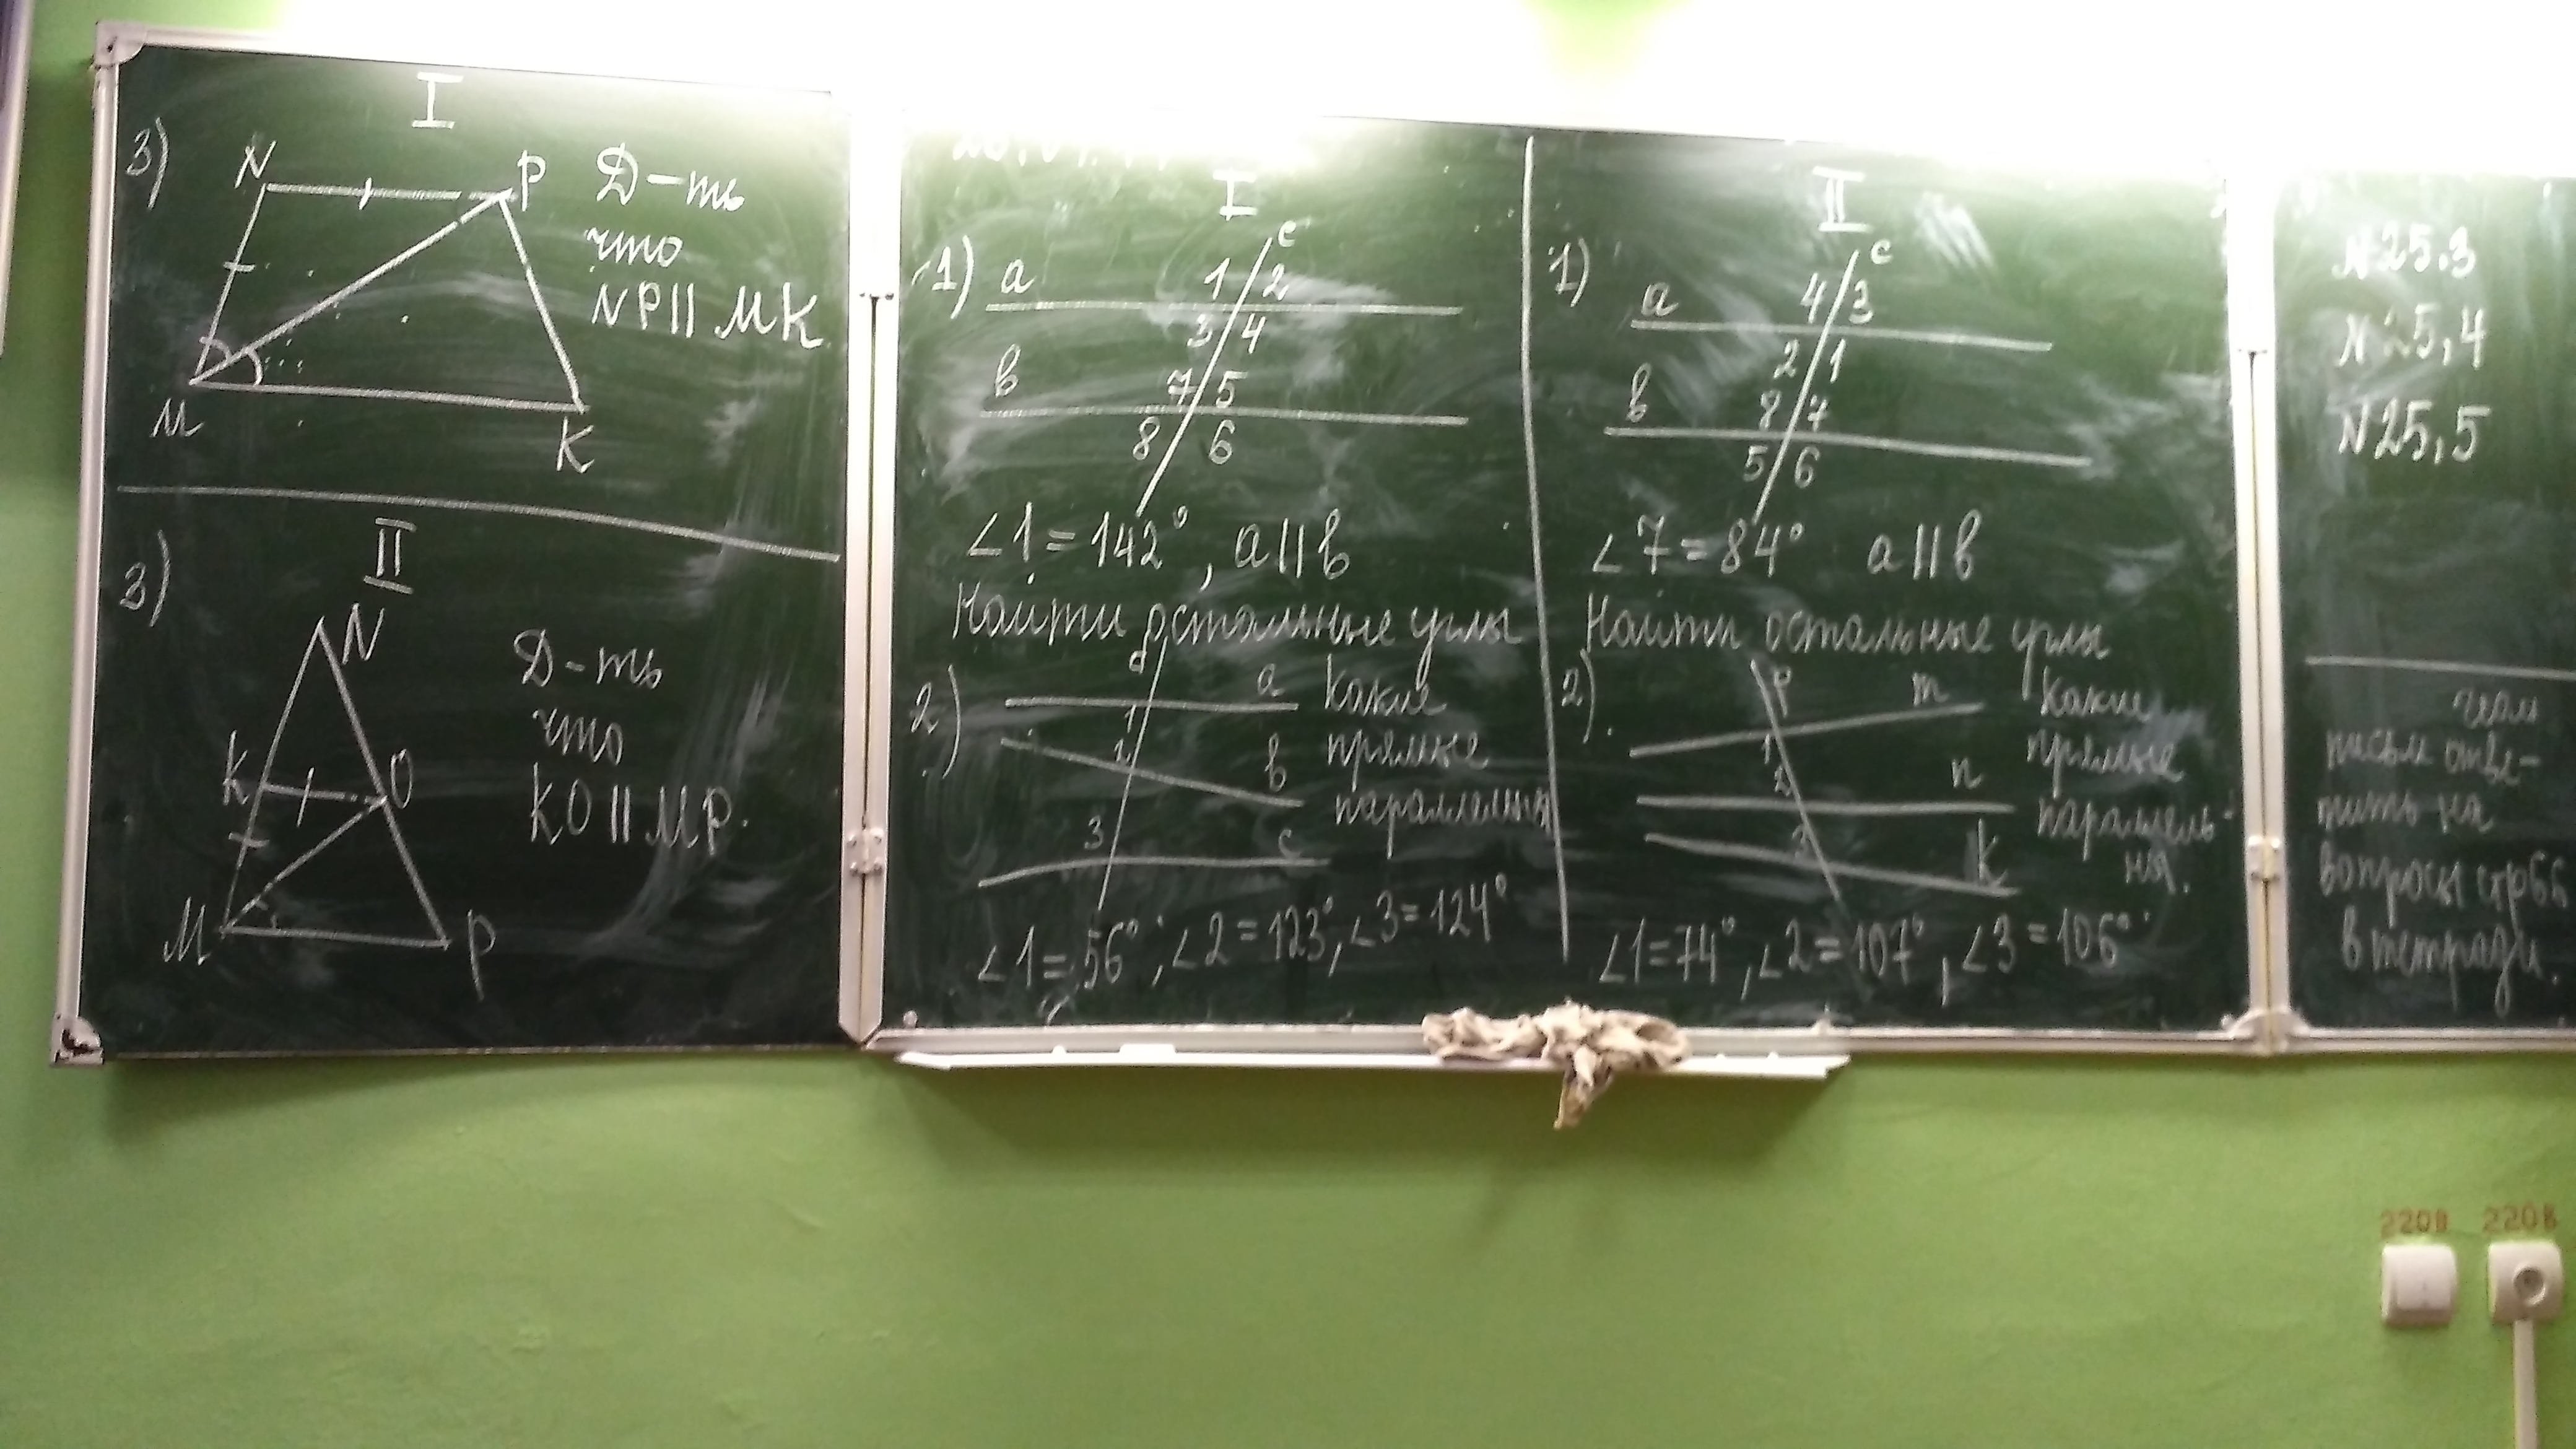 I
3)
N
P
M
K
Д-ть
что
NP || MK
II
3)
N
K
O
M
P
Д-ть
что
KO || MP.
I
1)
a
c
1 2
3 4
в
7 5
8 6
∠1 = 142°, a || в
Найти остальные углы
2)
d
a
1
2
в
3
c
Какие
прямые
∠1 = 56°, ∠2 = 123°, ∠3 = 124°
II
1)
a
c
4 3
2 1
в
8 7
5 6
∠7 = 84° a || в
Найти остальные углы
2)
P
m
1
2
n
3
k
Какие
прямые
параллель-
ны.
∠1 = 74°, ∠2 = 107°, ∠3 = 106°
N25.3
N25,4
N25,5
письм отве-
тить на
вопросы стр66
в тетради.
220В 220В